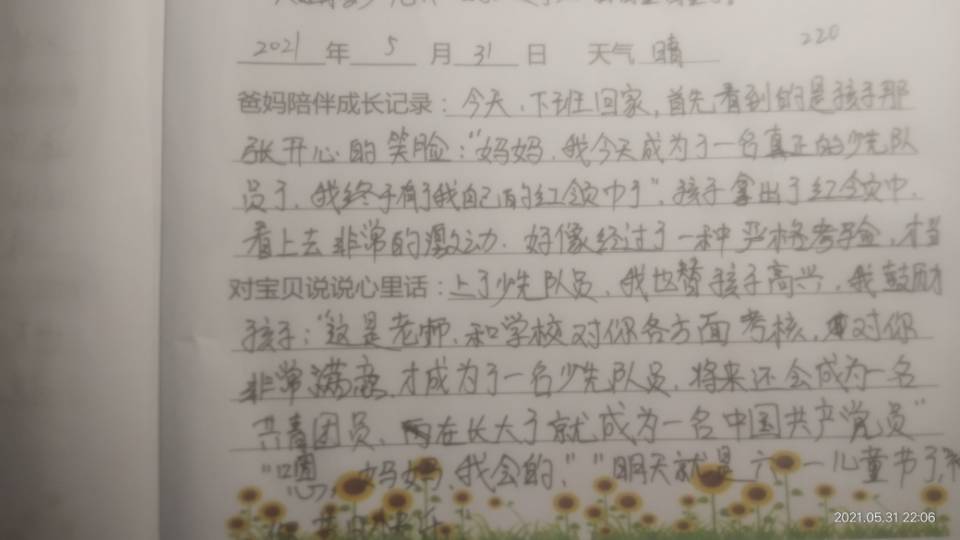 2021 年 5 月 31 日 天气 晴
220
爸妈陪伴成长记录：今天，下班回家，首先看到的是孩子那
张开心的笑脸："妈妈，我今天成为了一名真正的少先队
员了，我终于有了我自己的红领巾了"，孩子拿出了红领巾，
看上去非常的激动，好像经过了一种严格考验，才当
对宝贝说说心里话：上了少先队员，我也替孩子高兴，我鼓励
孩子："这是老师，和学校对你各方面考核，对你
非常满意，才成为了一名少先队员，将来还会成为一名
共青团员，再在长大了就成为一名中国共产党员"
"嗯，妈妈，我会的，""明天就是六一儿童节了，祝
2021.05.31 22:06